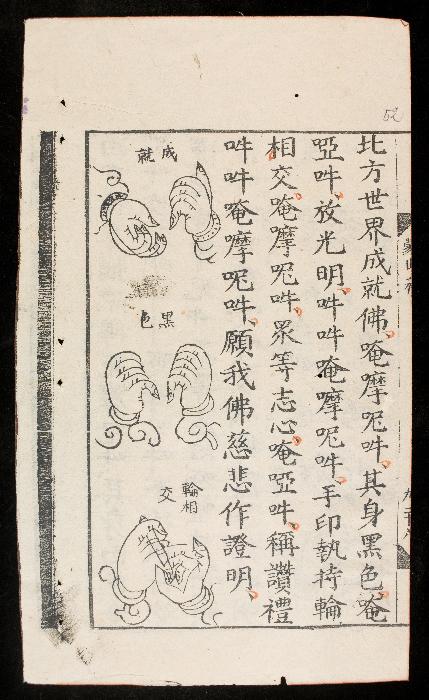 北方世界成就佛、唵摩呢吽、其身黑色、唵
啞吽、放光明、吽吽唵摩呢吽、手印執持輪
相交、唵摩呢吽、眾等志心、唵啞吽、稱讚禮
吽吽唵摩呢吽、願我佛慈悲作證明、
成就
黑色
輪相交
52